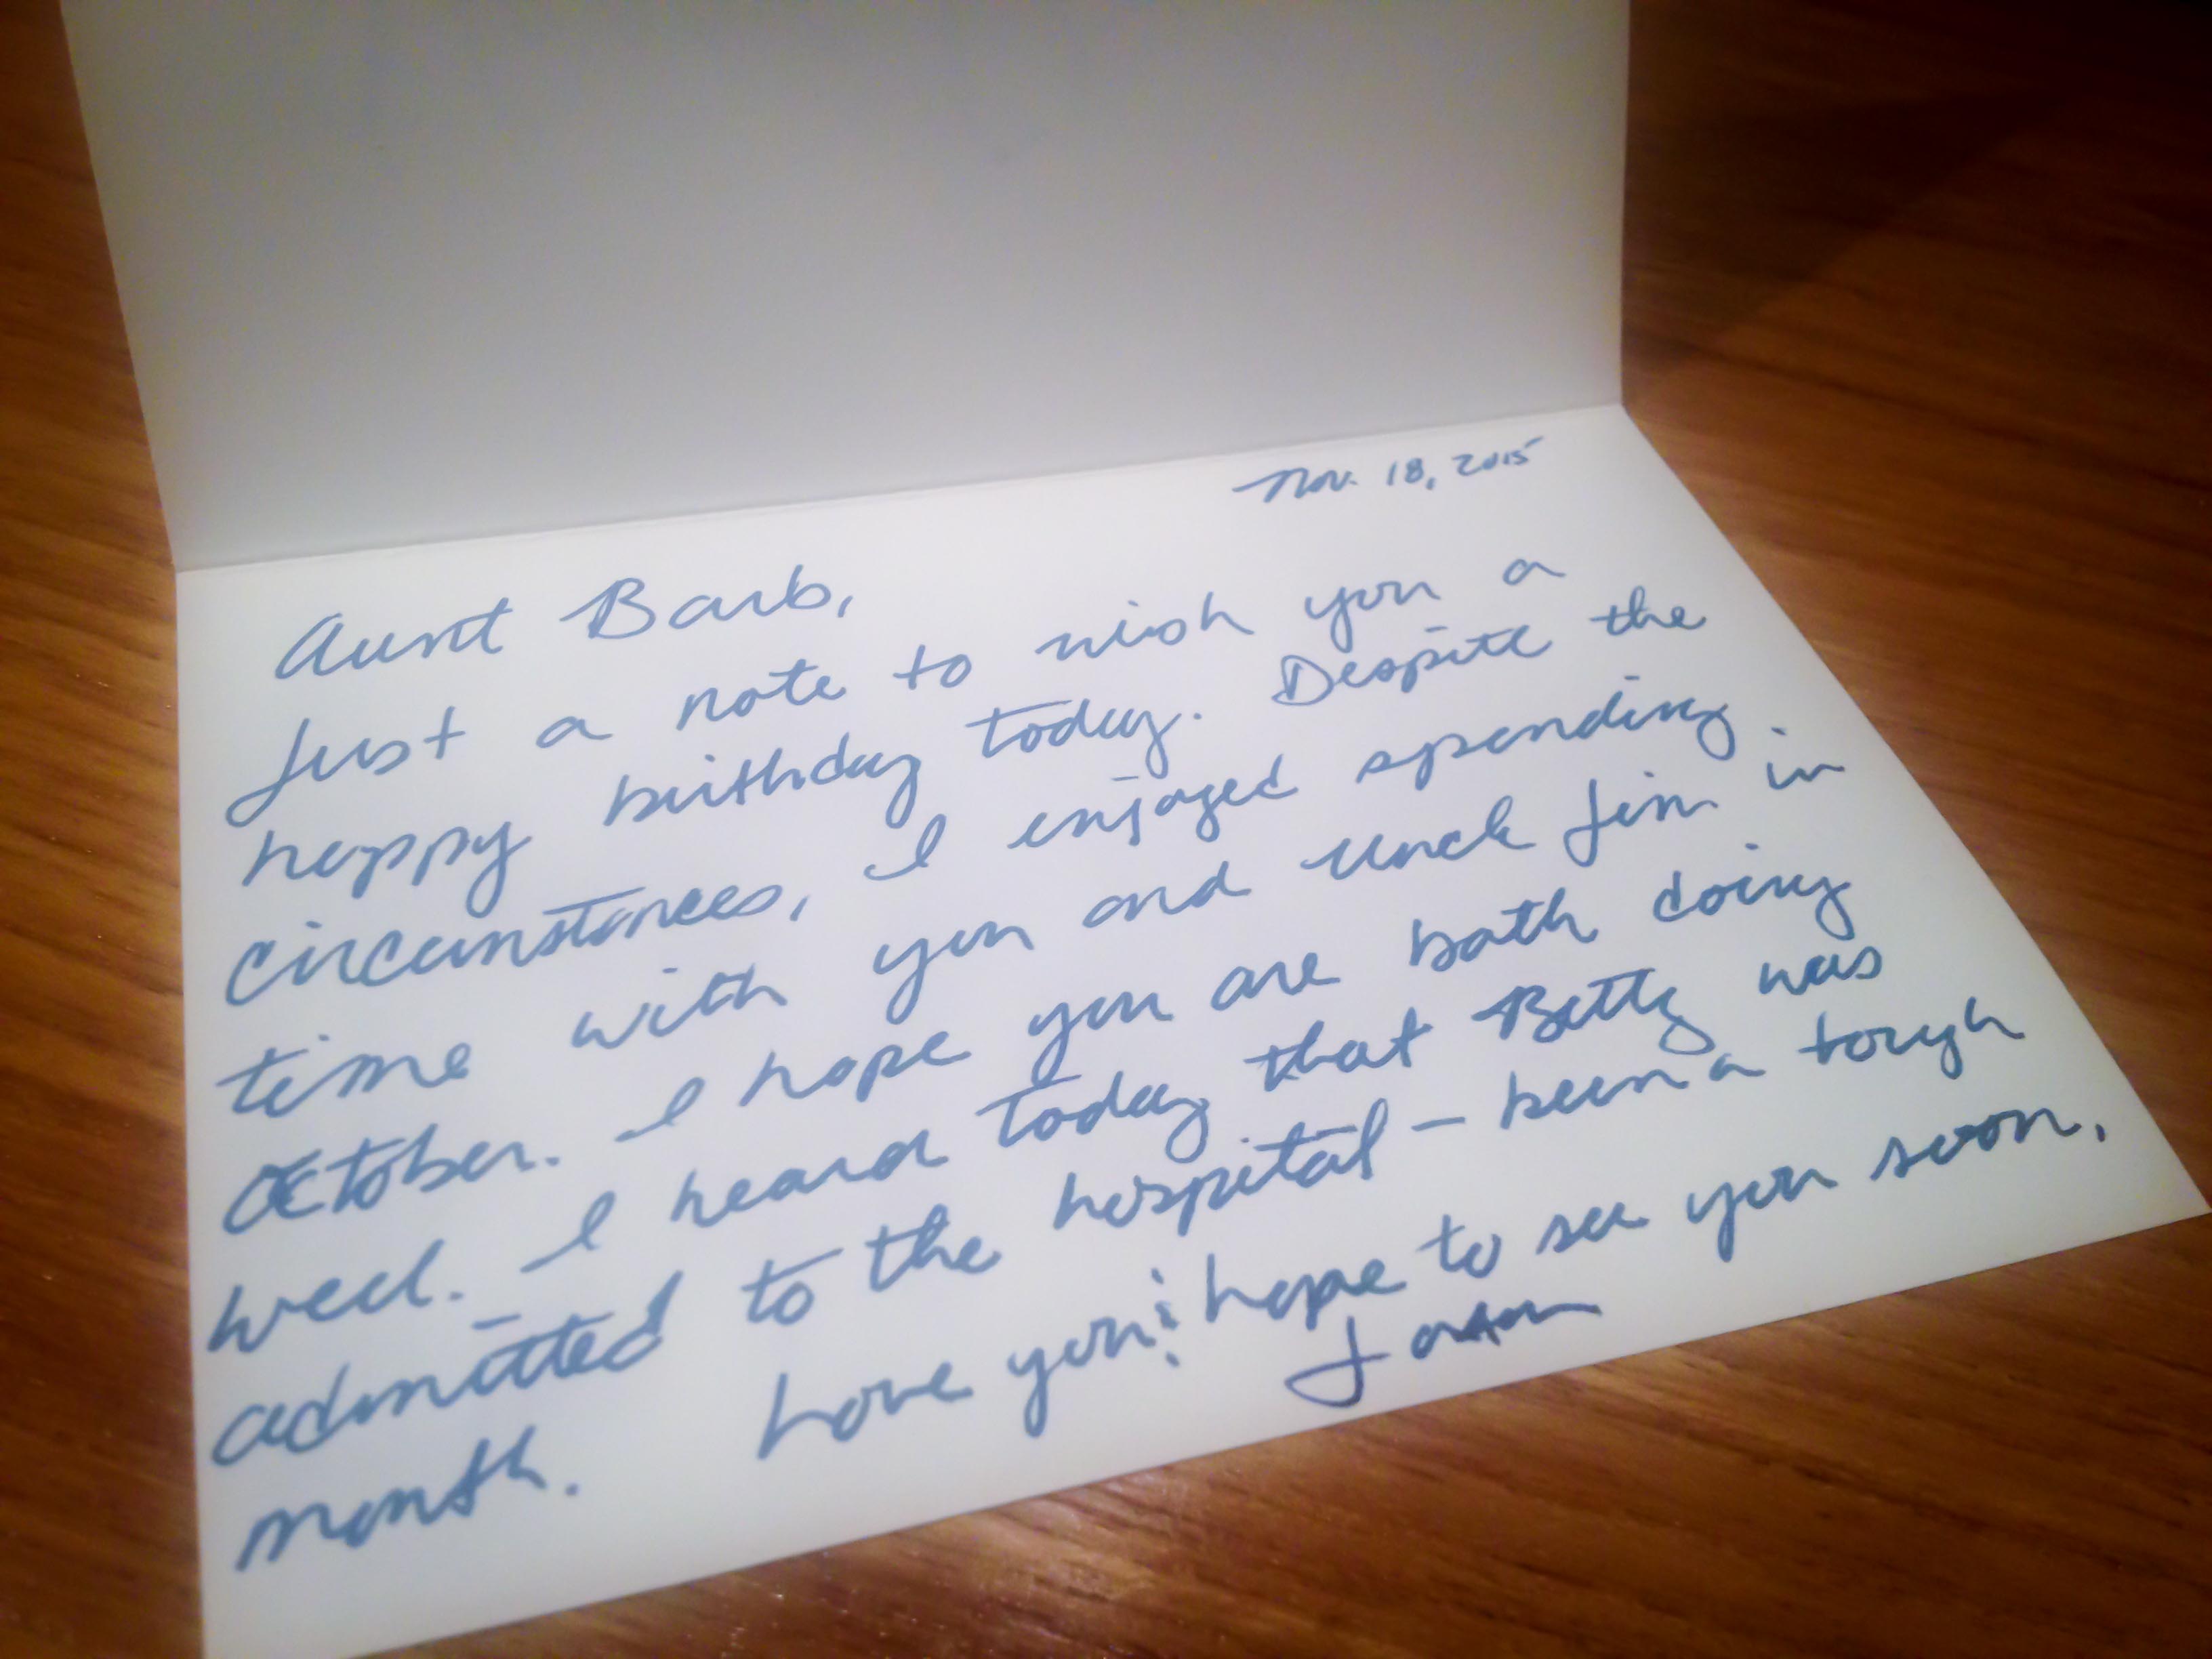 Nov. 18, 2015
Aunt Barb,
Just a note to wish you a
happy birthday today. Despite the
circumstances, I enjoyed spending
time with you and Uncle Jim in
October. I hope you are both doing
well. I heard today that Betty was
admitted to the hospital - been a tough
month. Love you & hope to see you soon,